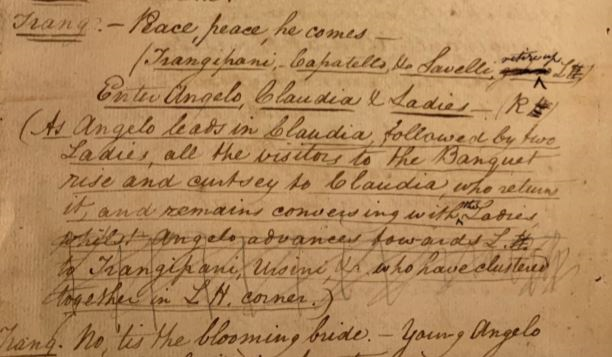 Frang:- Peace, peace, he comes -
(Frangipani, Capatello, &c Savelli, retire up L H.)
Enter Angelo, Claudia & Ladies - (R H)
(As Angelo leads in Claudia, followed by two
Ladies, all the visitors to the Banquet
rise and curtsey to Claudia who return
it, and remains conversing with the Ladies,
whilst Angelo advances towards L. H.
to Frangipani, Ursini &c. who have clustered
together in L H. corner.)
Frang. No, 'tis the blooming bride. - Young Angelo